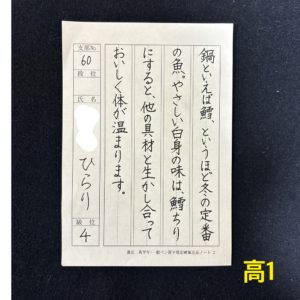 鍋といえば鱈、というほど冬の定番
の魚。やさしい白身の味は、鱈ちり
にすると、他の具材と生かし合って
おいしく体が温まります。
支部No.
60
段位
氏名
ひらり
級位
4
高1